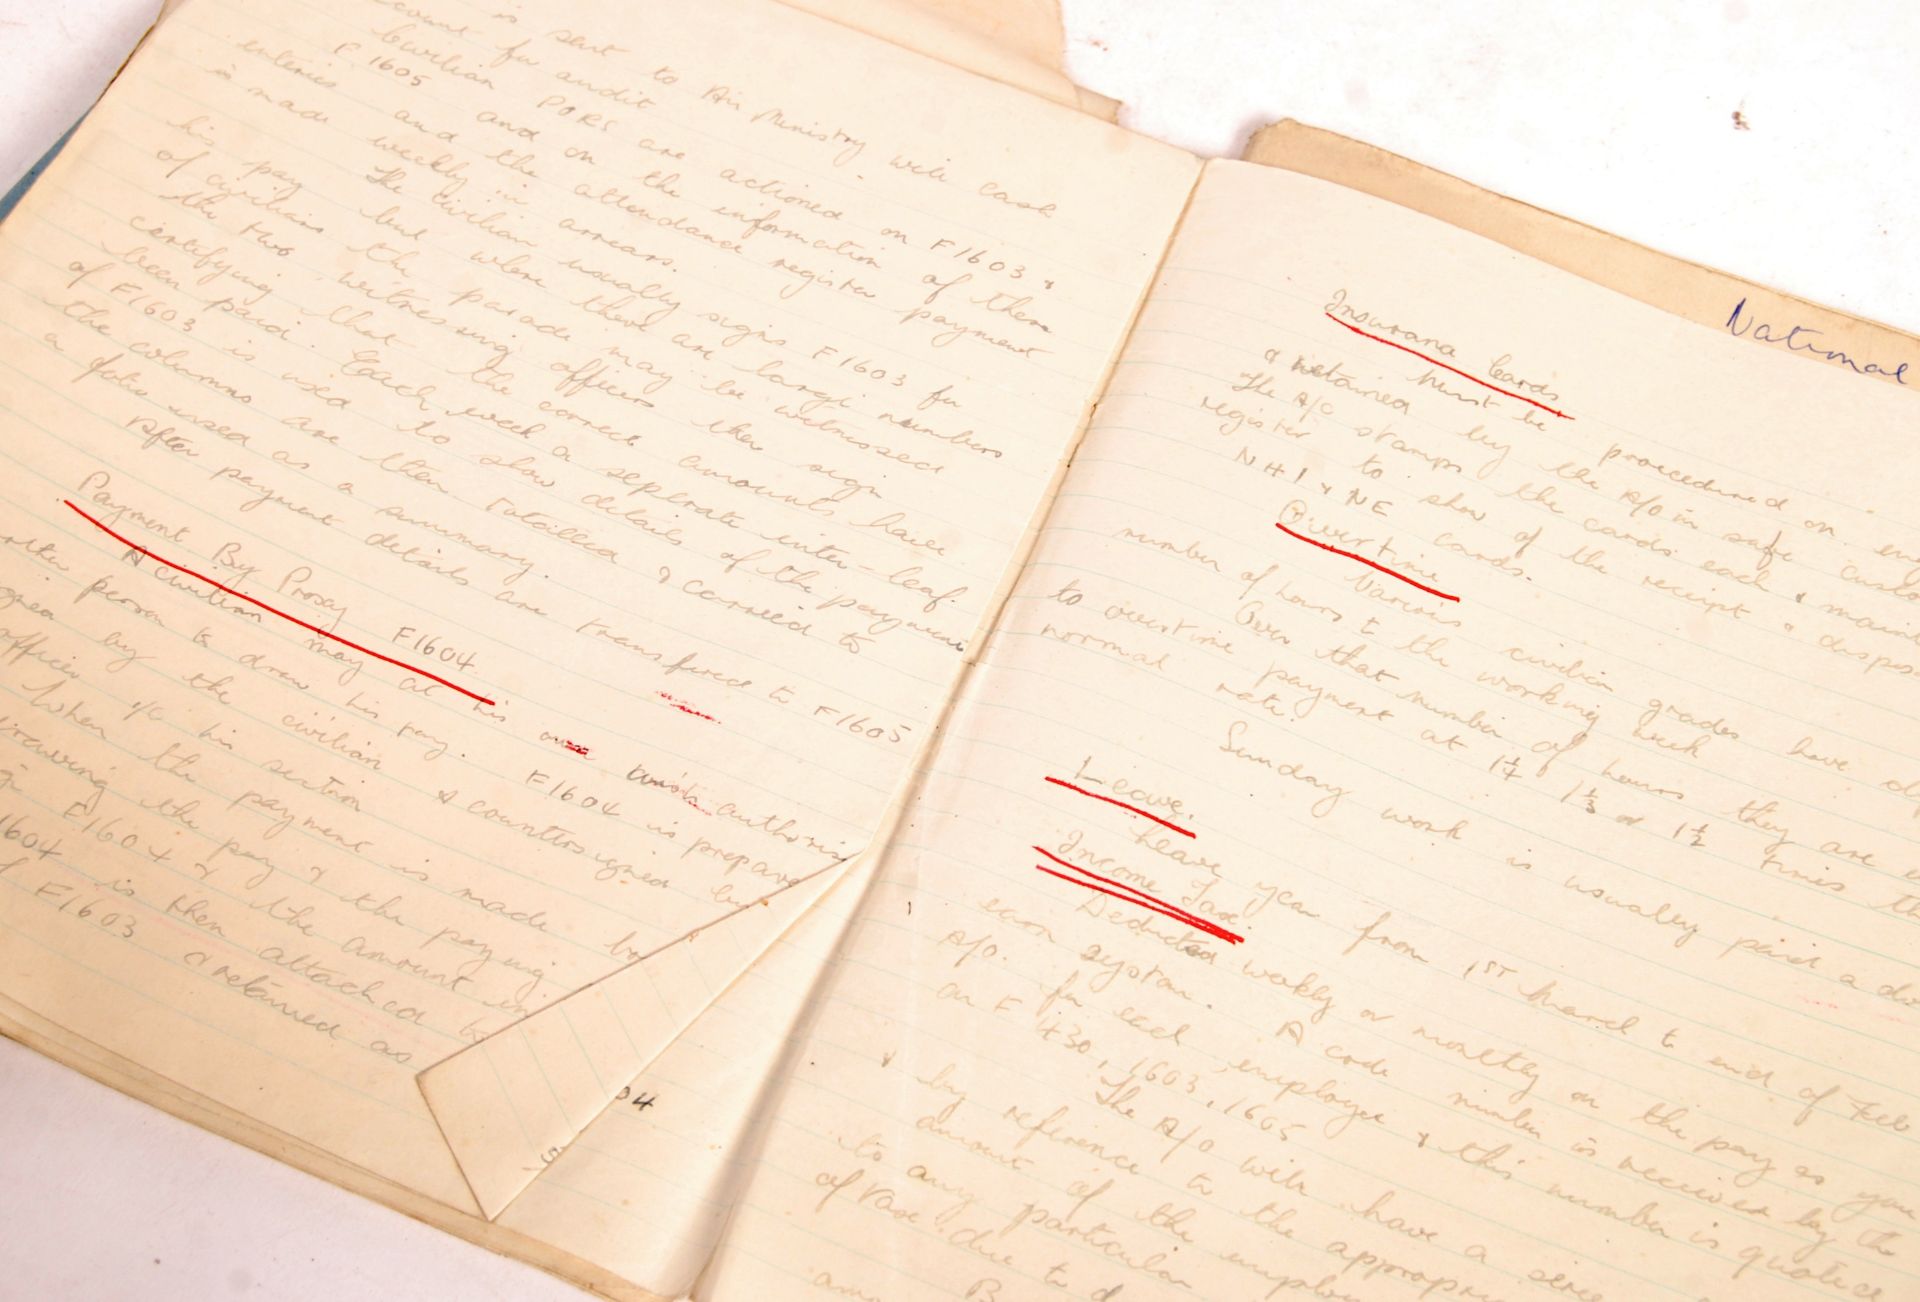 is sent to Air Ministry with cash
account for audit
Civilian PORs are actioned on F1603 &
F1605 and on the information of these
entries and the attendance register payment
is made weekly in arrears.
The civilian usually signs F1603 for
his pay but where there are large numbers
of civilians the parade may be witnessed
the two witnessing officers then sign
certifying that the correct amounts have
been paid. Each week a seperate inter-leaf
of F1603 is used to show details of the payment
the columns are then totalled & carried to
a folio used as a summary.
After payment details are transfered to F1605
Payment By Proxy F1604
A civilian may at his own wish authorise
person to draw his pay. F1604 is prepare
by the civilian & countersigned by
officer i/c his section
When the payment is made
drawing the pay & the paying
F1604 & the amount in
1604 is then attached to
F1603 & retained as
04
National
Insurance Cards
Must be proceedured on
& retained by the A/O in safe custo
The A/C stamps the cards each & maint
register to show of the receipt & dispos
NHI & NE cards.
Overtime
Various civilian grades have di
number of hours to the working week
Over that number of hours they are e
to overtime payment at 1¼ 1⅓ or 1½ times th
normal rate.
Sunday work is usually paid a do
Leave.
Leave year from 1ST March to end of Feb
Income Tax
Deducted weekly or monthly on the pay as you
earn system. A code number is received by the
A/O. for each employee & this number is quoted
on F 430, 1603, 1605
The A/O will have a
& by reference to the appropri
amount of the employ
to any particular
of tax due to d
B